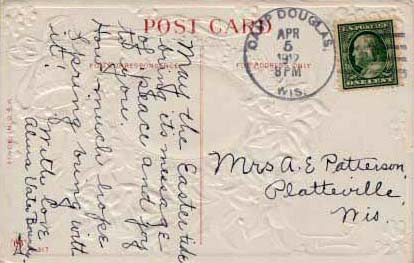 POST CARD
FOR CORRESPONDENCE
FOR ADDRESS ONLY
CAMP DOUGLAS,
APR
5
1912
8PM
WIS.
U.S. POSTAGE
ONE CENT
May the Easter tide
bring its message
of peace and joy
to you.
How much hope
Spring brings with
it!
With love
Mrs A. E Patterson
Platteville,
Wis.
317